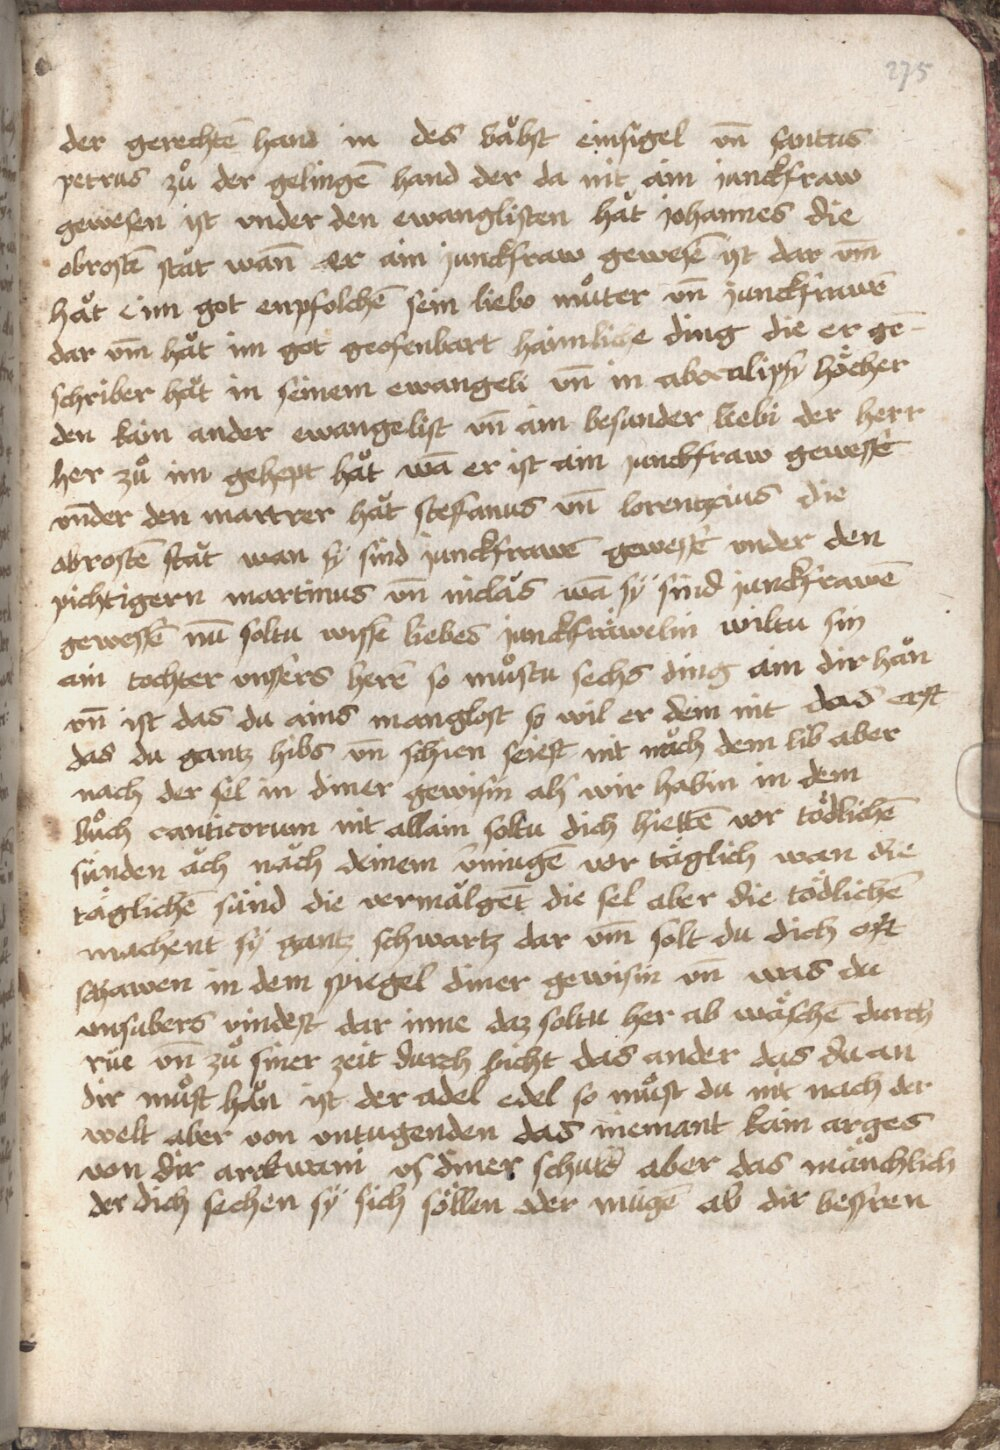 275
der gerechtē hand in des bāͦbst einsigel vn̄ santus
petrus zuͦ der gelingē hand der da nit ain junckfraw
gewesen ist vnder den ewanglisten haͤt johannes die
obrostē staͤt wan̄ er ain junckfraw gewesē ist dar vm̄
haͤt im got enpfolchē sein liebo muͦter vn̄ junckfrawē
dar vm̄ haͤt im got geofenbart haimliche ding die er ge-
schriber haͤt in seinem ewangeli vn̄ in abocalipsy hoͤcher
den kain ander ewangelist vn̄ ain besunder liebi der herr
her zuͦ im gehept haͤt wā er ist ain junckfraw gewessē
vn̄der den martrer haͤt stefanus vn̄ lorentzius die
obrostē staͤt wan sy sind junckfrawē gewessē vnder den
pichtigern martinus vn̄ niclaͤs wā sy sind junckfrawē
gewessē nū soltu wissē liebes junckfraͤwelin wiltu sin
ain tochter vnsers herē so muͦstu sechs ding ain dir haͤn
vn̄ ist das du ains manglost so wil er dein nit das erst
das du gantz hibs vn̄ schien seiest nit naͤch dem lib aber
nach der sel in diner gewisin als wir habin in dem
buͦch canticorum nit allain soltu dich hiettē vor toͤdlichē
sunden aͤch naͤch deinem v̄mugē vor taͤglich wan die
taͤglichē sünd die vermaͤlgēt die sel aber die toͤdlichē
machent sy gantz schwartz dar vm̄ solt du dich oft
schawen in dem spiegel diner gewisin vn̄ was du
vnsubers vindest dar inne daz soltu her ab waͤschē durch
rüe vn̄ zuͦ siner zeit durch bicht das ander das du an
dir muͦst haͤn ist der adel edel so muͦst du nit nach der
welt aber von vntugenden das niemant kain arges
von dir arckwani vs diner schuld aber das maͤnchlich
der dich sechen sy sich soͤllen oder mügē ab dir bessren